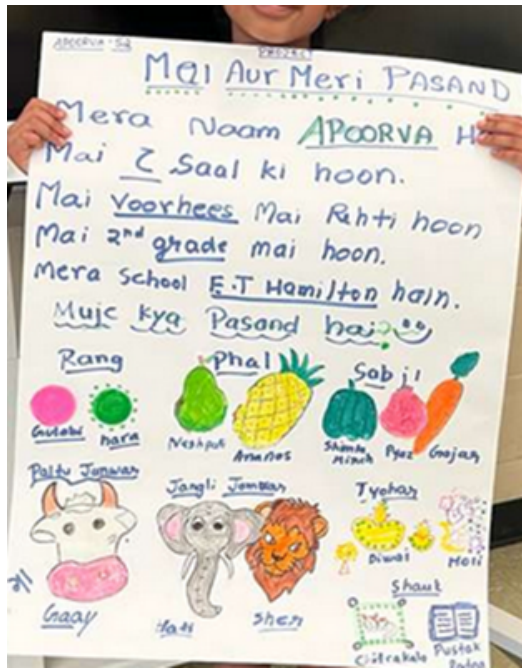 APOORVA - S2
PROJECT
Mai Aur Meri PASAND
Mera Naam APOORVA H
Mai 7 Saal ki hoon.
Mai Voorhees Mai Rehti hoon
Mai 2nd grade mai hoon.
Mera School E.T Hamilton hain.
Mujc kya Pasand hai?
Rang
Phal
Sabji
Gulabi
hara
Nashpati
Ananas
Shimla Mirch
Pyaz
Gajar
Paltu Janwar
Jangli Janwar
Tyohar
Gaay
Hati
Sher
Diwali
Holi
Shauk
Chitrakala
Pustak